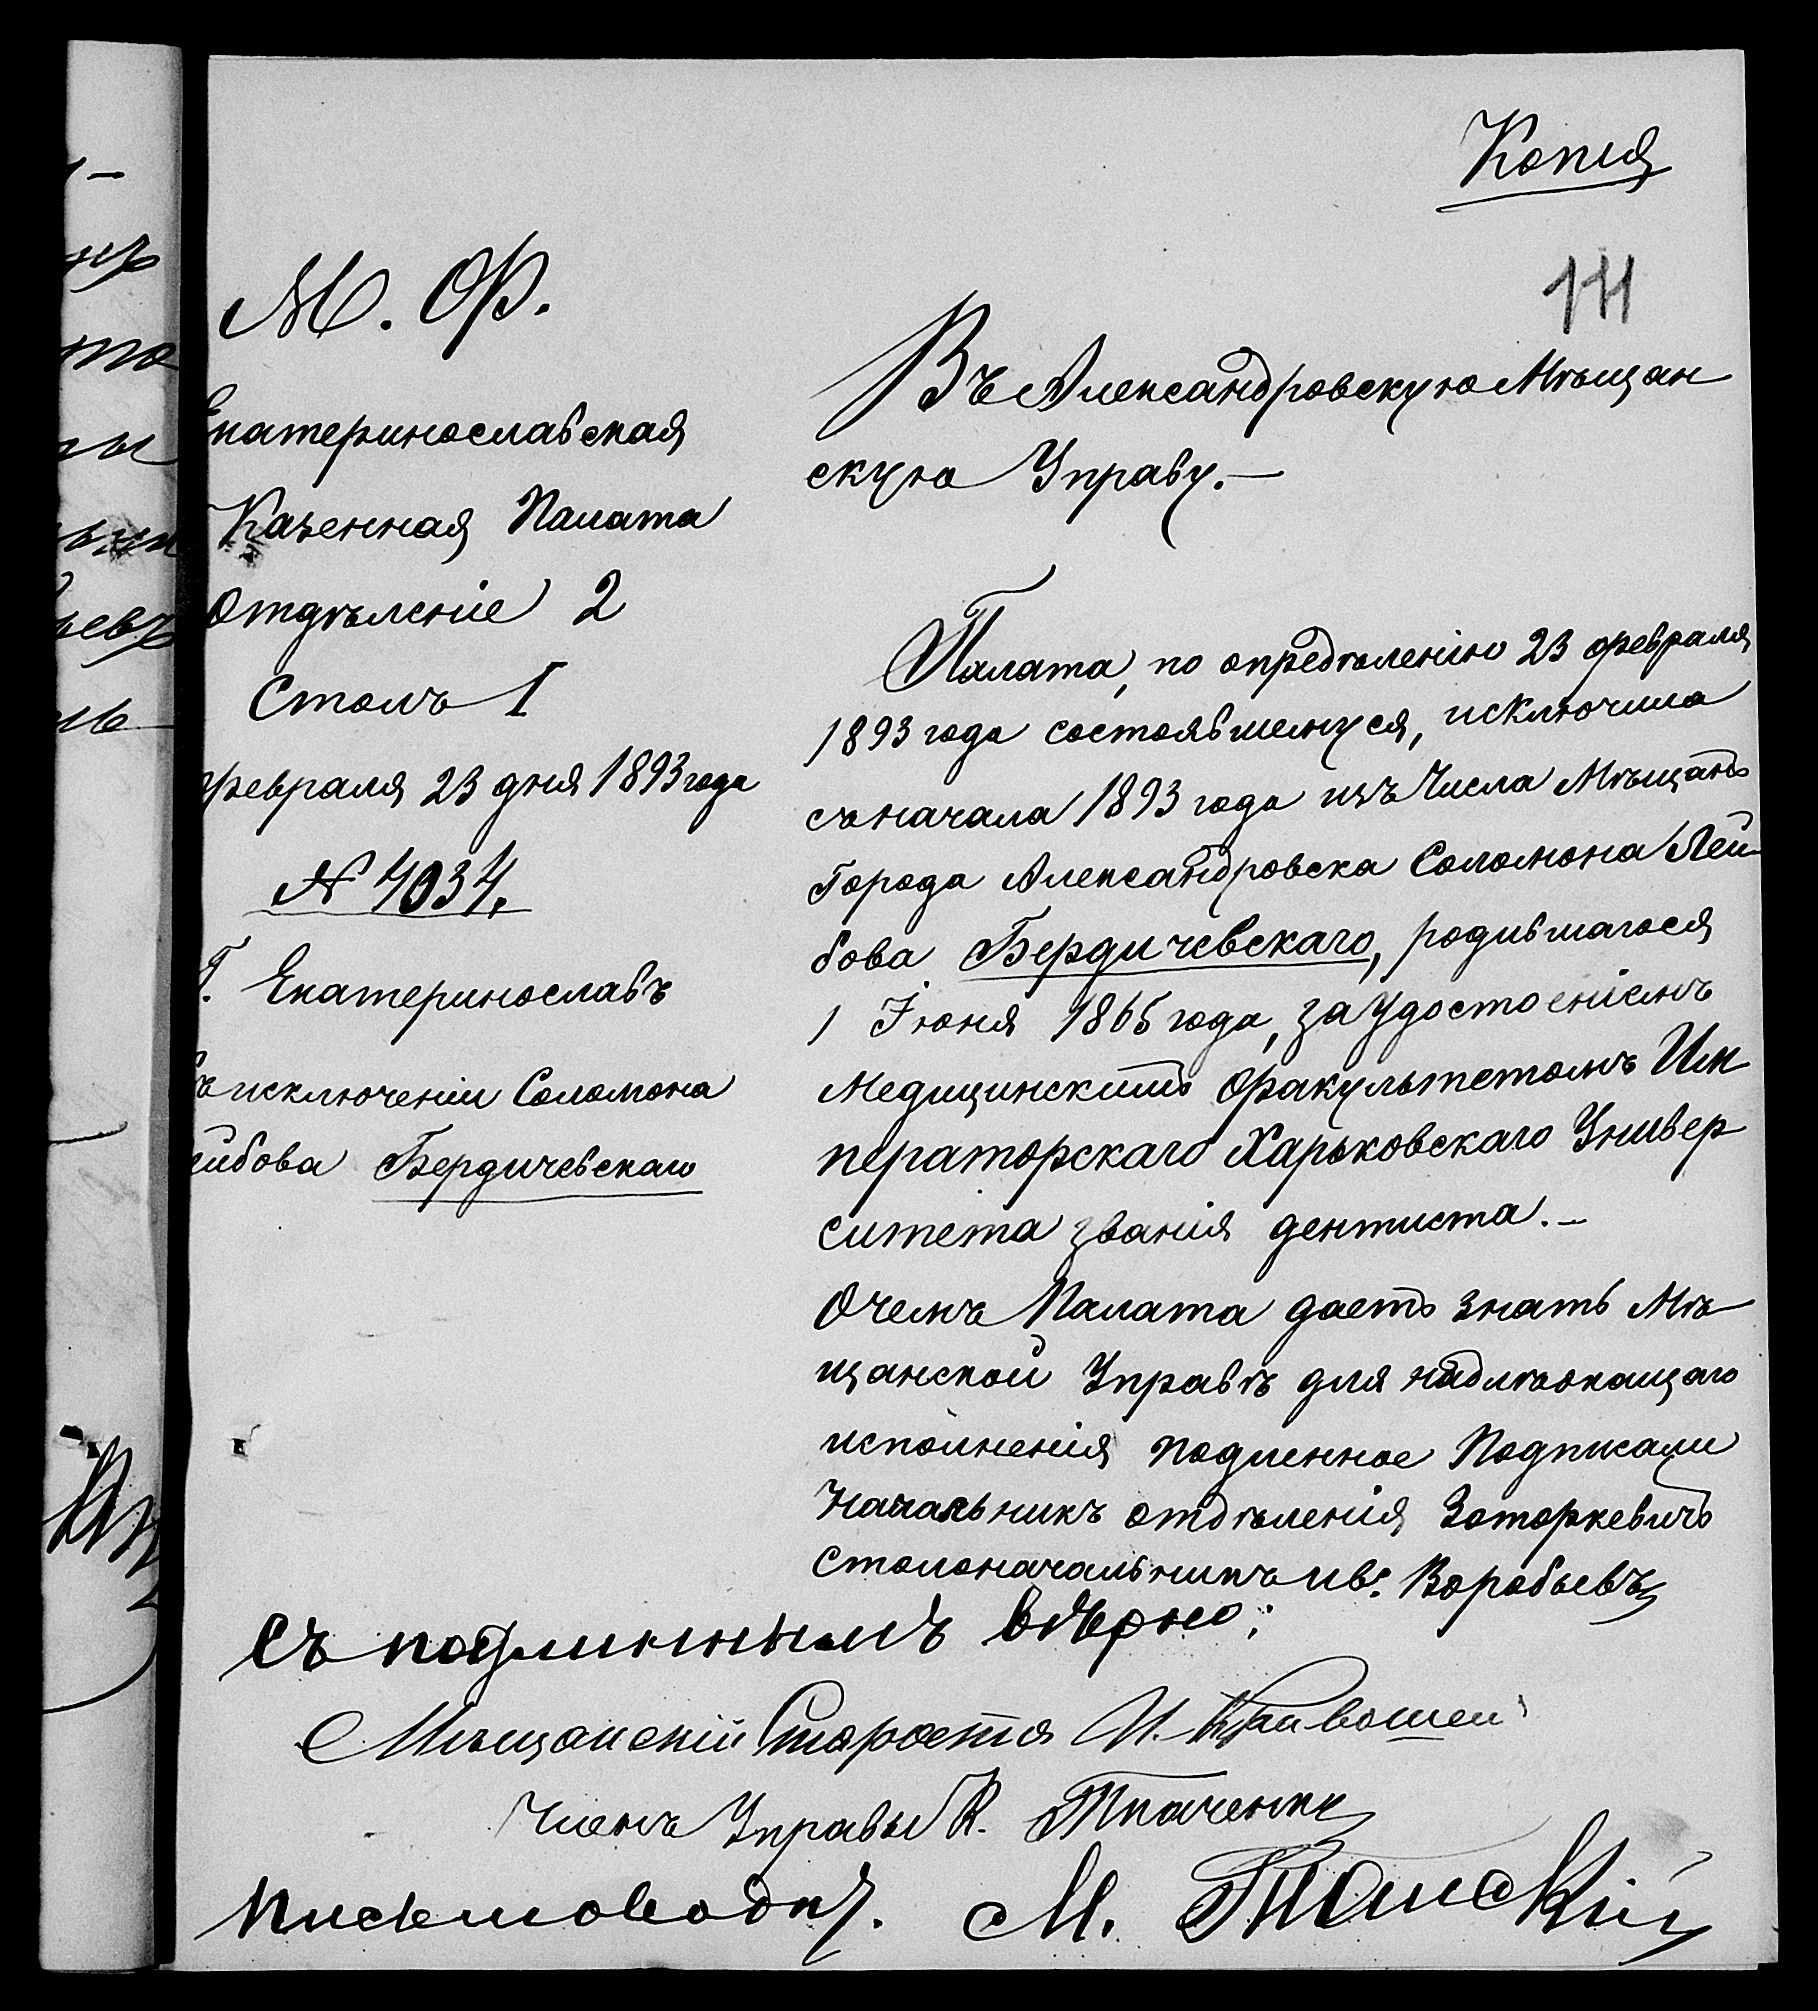 Копия
111
М. Ф.
Екатеринославская
Казенная Палата
Отдѣленіе 2
Столъ I
февраля 23 дня 1893 года
№ 4034.
Г. Екатеринославъ
исключеніи Соломона
Лейбова Бердичевскаго
Въ Александровскую Мѣщан
скую Управу.—
Палата, по опредѣленію 23 февраля
1893 года состоявшемуся, исключила
съ начала 1893 года изъ Числа Мѣщанъ
Города Александровска Соломона Лей
бова Бердичевскаго, родившагося
1 Іюня 1865 года, за удостоеніемъ
Медицинскимъ факультетомъ Им
ператорскаго Харьковскаго Универ
ситета званія дентиста.—
О чемъ Палата даетъ знать Мѣ
щанской Управѣ для надлѣжащаго
исполненія подленное Подписали
Начальникъ отдѣленія
Столоначальникъ Воробьевъ
Съ подлиннымъ вѣрно:
Мѣщанскій Староста И. Кривошеи
Членъ Управы К. Ткаченко
Письмоводит. М.